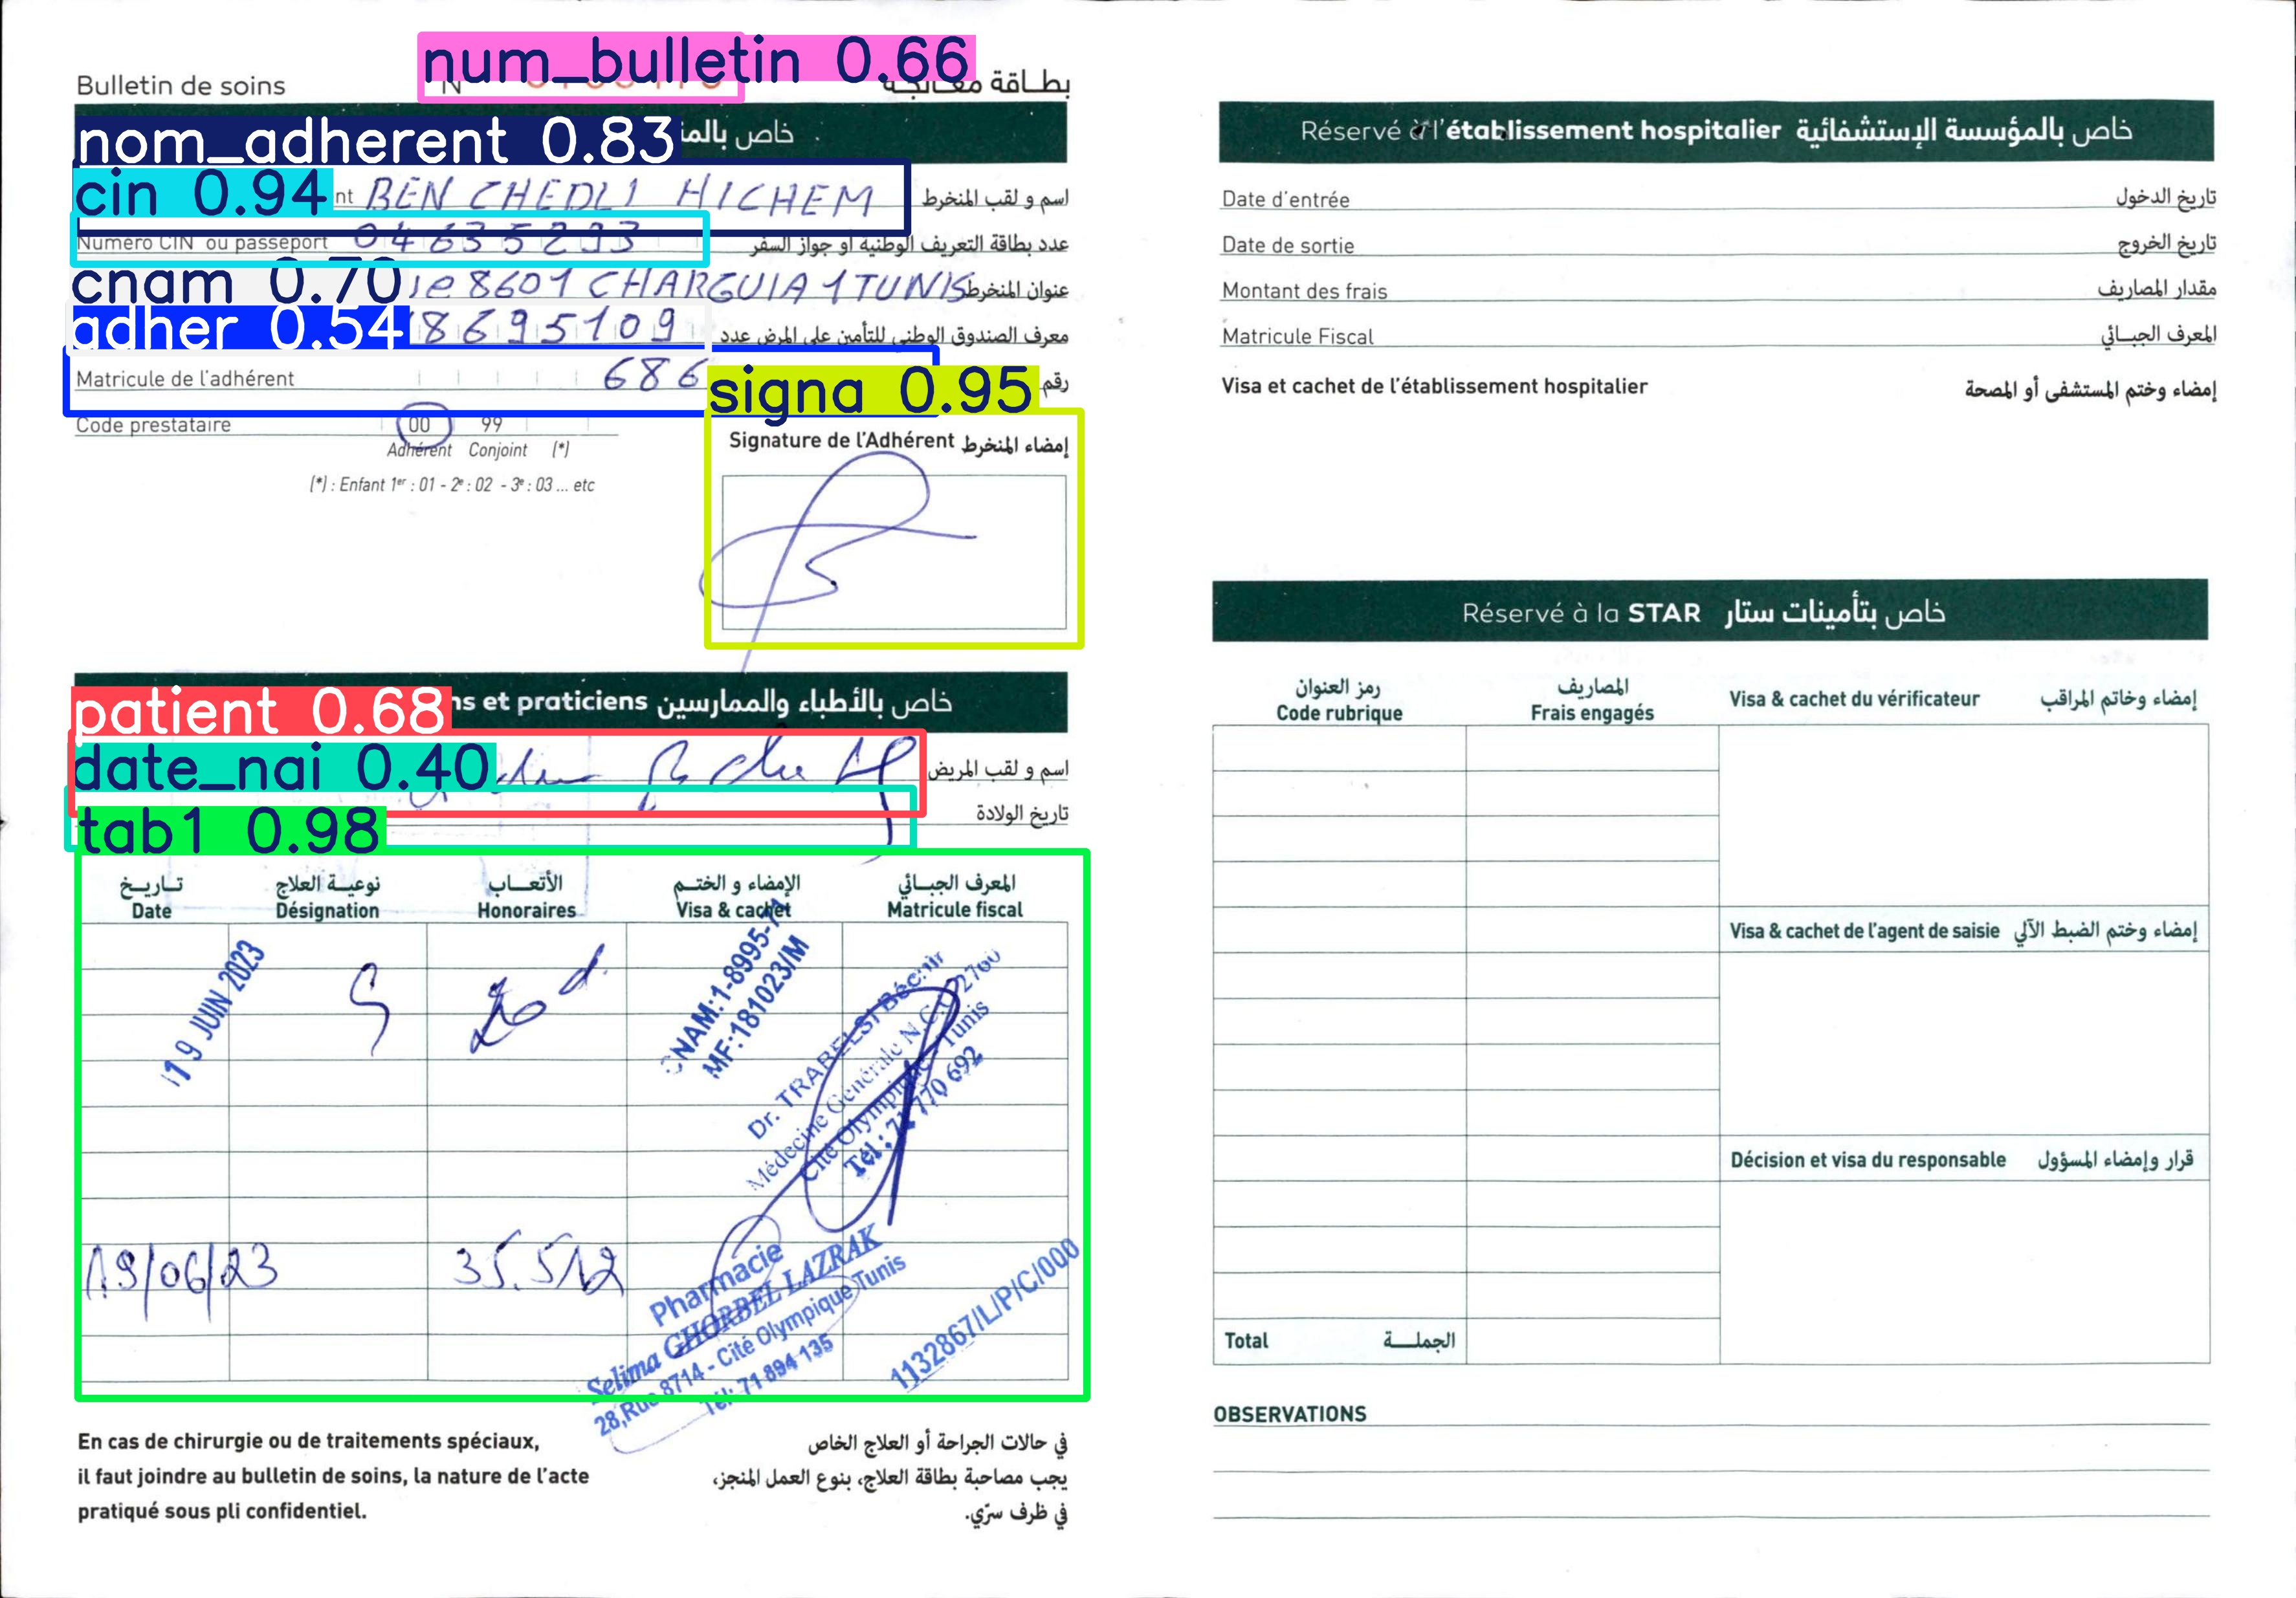 num_bulletin 0.66
Bulletin de soins
N
بطاقة معالجة
nom_adherent 0.83
خاص بالم
cin 0.94
nt BEN CHEDLI HICHEM اسم و لقب المنخرط
Numéro CIN ou passeport 04635293 عدد بطاقة التعريف الوطنية أو جواز السفر
cnam 0.70
8601 CHARGUIA 1 TUNIS عنوان المنخرط
adher 0.54
8695109 معرف الصندوق الوطني للتأمين على المرض عدد
Matricule de l'adhérent 686 رقم
signa 0.95
Code prestataire 00 99
Adhérent Conjoint (*)
(*) : Enfant 1er : 01 - 2e : 02 - 3e : 03 ... etc
Signature de l'Adhérent إمضاء المنخرط
patient 0.68
ns et praticiens خاص بالأطباء والممارسين
date_nai 0.40
اسم و لقب المريض
tab1 0.98
تاريخ الولادة
تاريخ نوعية العلاج الأتعاب الإمضاء و الختم المعرف الجبائي
Date Désignation Honoraires Visa & cachet Matricule fiscal
19 JUIN 2023
CNAM:1-8995-71
MF:181023/M
Dr. TRABELSI Béchir
Médecine Générale
Cité Olympique Tunis
Tél.: 71 770 692
19/06/23 35.512
Pharmacie
Selima GHORBEL LAZRAK
28, Rue 8714 - Cité Olympique Tunis
Tél: 71 894 135
1132867/L/P/C/000
En cas de chirurgie ou de traitements spéciaux,
il faut joindre au bulletin de soins, la nature de l'acte
pratiqué sous pli confidentiel.
في حالات الجراحة أو العلاج الخاص
يجب مصاحبة بطاقة العلاج، بنوع العمل المنجز،
في ظرف سرّي.
Réservé à l'établissement hospitalier خاص بالمؤسسة الإستشفائية
Date d'entrée تاريخ الدخول
Date de sortie تاريخ الخروج
Montant des frais مقدار المصاريف
Matricule Fiscal المعرف الجبائي
Visa et cachet de l'établissement hospitalier إمضاء وختم المستشفى أو المصحة
Réservé à la STAR خاص بتأمينات ستار
رمز العنوان المصاريف
Code rubrique Frais engagés
Visa & cachet du vérificateur إمضاء وخاتم المراقب
Visa & cachet de l'agent de saisie إمضاء وختم الضبط الآلي
Décision et visa du responsable قرار وإمضاء المسؤول
Total الجملة
OBSERVATIONS